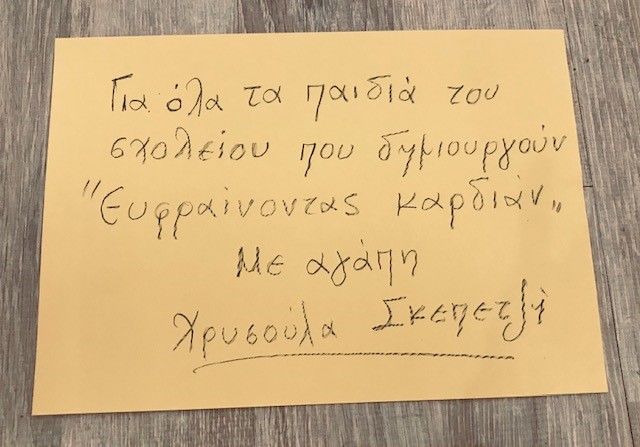 Για όλα τα παιδιά του
σχολείου που δημιουργούν
"Ευφραίνοντας καρδιάν„
Με αγάπη
Χρυσούλα Σκεπετζή